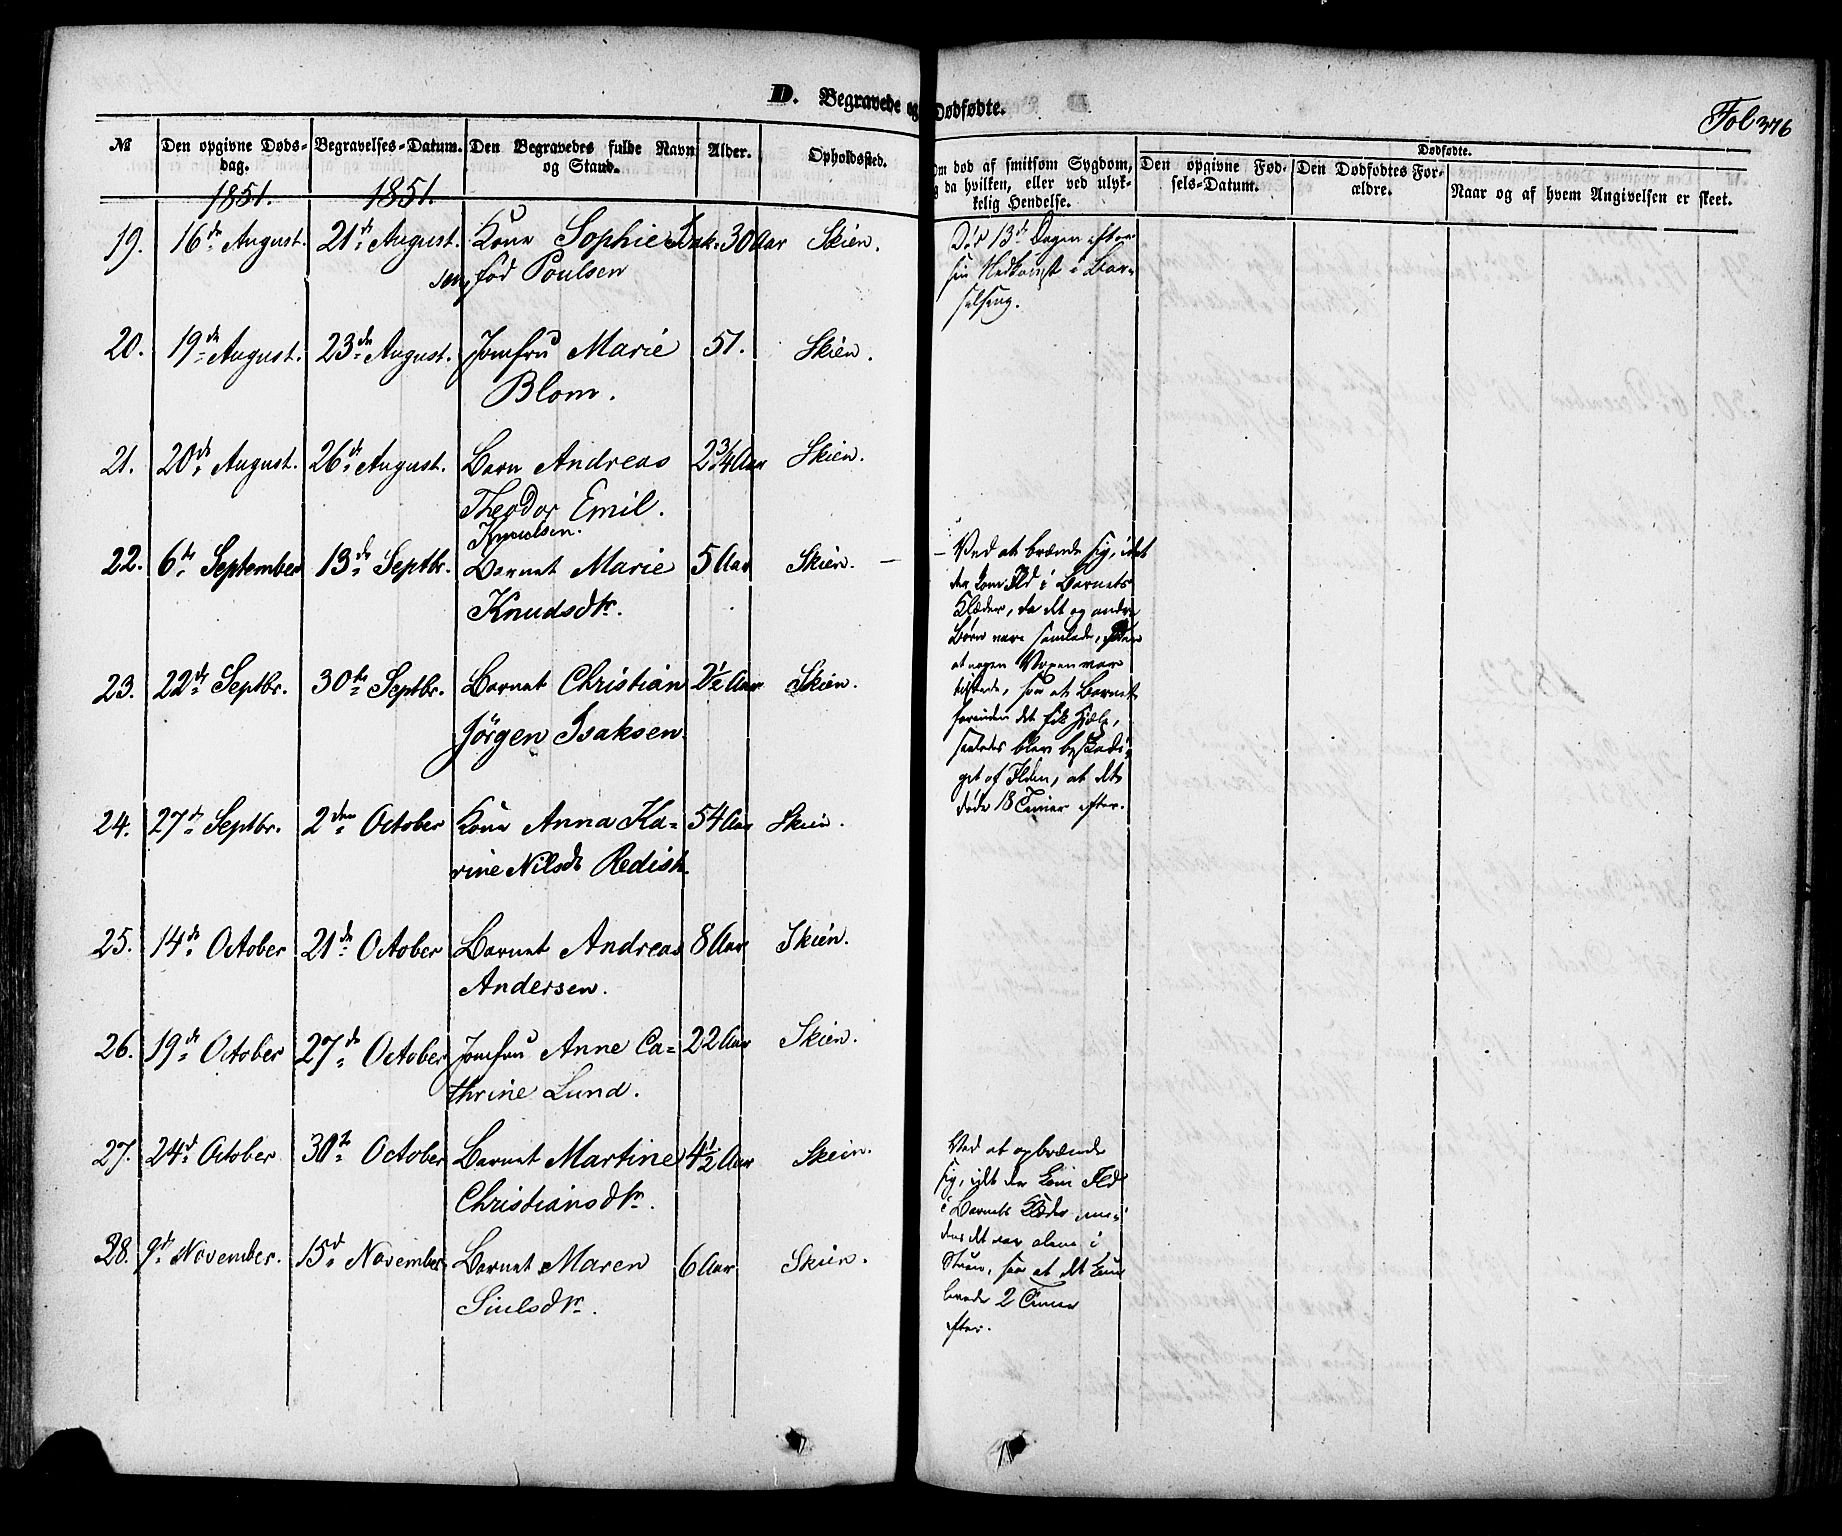 D. Begravede og Dødfødte.
Fol 376
№
Den opgivne Døds-
dag.
Begravelses-Datum.
Den Begravedes fulde Navn
og Stand.
Alder.
Opholdssted.
Om død af smitsom Sygdom,
og da hvilken, eller ved ulyk-
kelig Hendelse.
Dødfødte.
Den opgivne Fød-
sels-Datum.
Den Dødfødtes For-
ældre.
Naar og af hvem Angivelsen er skeet.
1851. 1851.
19. 16de August. 21de August. Kone Sophie Isak- 30 Aar Skien.
sen, fød Poulsen
Dør 13de Dagen efter
sin Nedkomst i Bar-
selseng.
20. 19de August. 23de August. Jomfru Marie 51. Skien.
Blom.
21. 20de August. 26de August. Barn Andreas 2 3/4 Aar Skien.
Theodor Emil.
Knudsen.
22. 6te September 13de Septbr. Barnet Marie 5 Aar Skien. —
Knudsdtr.
— Ved at brænde sig, idet
der kom Ild i Barnets
Klæder, da det og andre
Børn vare samlede, uden
at nogen Voxen var
tilstede, saa at Barnet
forinden det fik Hjælp,
saaledes blev beskadi-
get af Ilden, at det
døde 18 Timer efter.
23. 22de Septbr. 30te Septbr. Barnet Christian 2 1/2 Aar Skien.
Jörgen Isaksen.
24. 27de Septbr. 2den October Kone Anna Ka- 54 Aar Skien.
rine Nilsdt Redish.
25. 14de October 21de October Barnet Andreas 8 Aar Skien.
Andersen.
26. 19de October 27de October Jomfru Anne Ca- 22 Aar Skien.
thrine Lund.
27. 24d October 30te October Barnet Martine 4 1/2 Aar Skien.
Christiansdtr.
Ved at opbrænde
sig, idet der kom Ild
i Barnets Klæder, me-
dens det var alene i
Stuen, saa at det kun
levede 2 Timer
efter.
28. 9d November. 15d November Barnet Maren 6 Aar Skien.